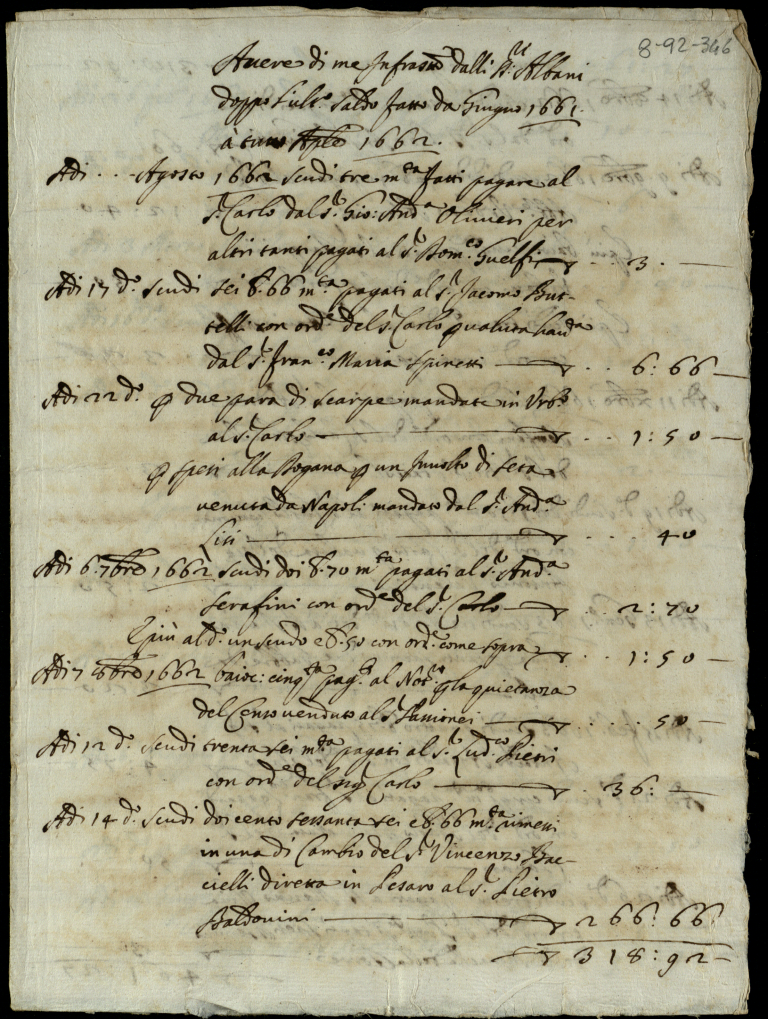 8-92-346
Auere di me Infrasto dalli SS.ri Albani
doppo l'ulto saldo fatto da Giugno 1661.
à tutto Aple 1662.
Adi . . . Agosto 1662 scudi tre mta fatti pagare al
Sr. Carlo dal Sr. Gio: Anda Oliuieri per
altri tanti pagati al Sr. Domco Guelfi . . 3 . —
Adi 17 do. scudi sei b. 66 mta pagati al Sr. Jacomo But-
telli con orde del Sr. Carlo
dal Sr. Franco Maria Spinetti — . . 6 : 66 —
Adi 22 do. p due para di scarpe mandate in Urbo
al Sr. Carlo — . . 1 : 50 —
p spesi alla Dogana p un Inuolto di seta
venuta da Napoli mandato dal Sr. Anda
Lisi — . . . . 40
Adi 6. 7bre 1662 scudi doi b. 70 mta pagati al Sr. Anda
Serafini con orde del Sr. Carlo — . . 2 : 70
E più al do. un scudo e b. 50 con orde. come sopra . . 1 : 50 —
Adi 7 8bre 1662 baioc: cinqta pagti al Noto p la quietanza
del Censo venduto al Sr. Passionei — . . . . 50 —
Adi 12 do. scudi trenta sei mta pagati al Sr. Ludco Pieri
con orde del sigr Carlo — . . 36 : —
Adi 14 do. scudi doicento sessanta sei e b. 66 mta rimessi
in una di Cambio del Sr. Vincenzo Bac-
cielli diretta in Pesaro al Sr. Pietro
Baldouini — 266 : 66
— 318 : 92 —